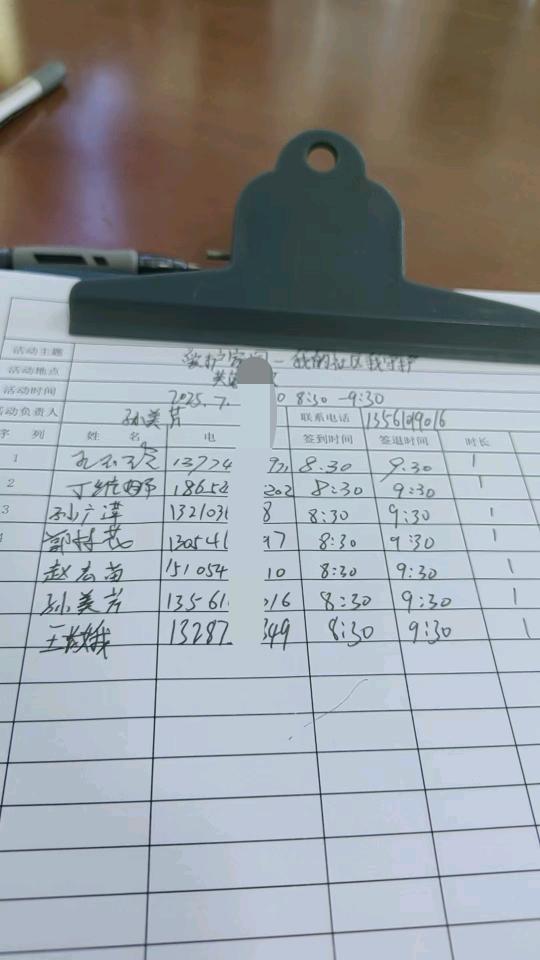 活动主题 爱护家园 - 我的社区我守护
活动地点
活动时间 2025.7. 0 8:30 - 9:30
活动负责人 孙美芳 联系电话 13561019016
序 列 姓 名 电 签到时间 签退时间 时长
1 13774 8:30 9:30 1
2 18652 202 8:30 9:30 1
3 孙广萍 132103 8 8:30 9:30 1
13054 97 8:30 9:30 1
赵宏苗 151054 10 8:30 9:30 1
孙美芳 13561 016 8:30 9:30 1
13287 349 8:30 9:30 1